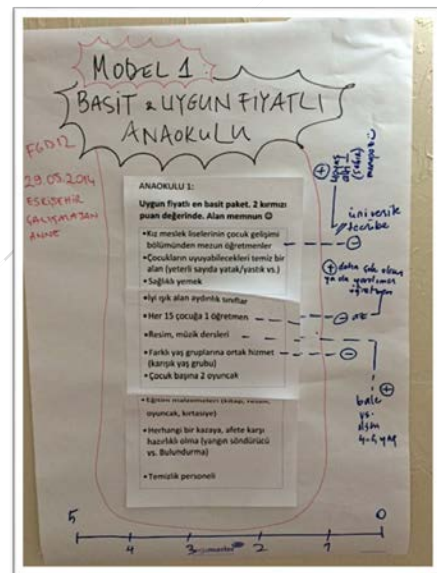 MODEL 1
BASİT & UYGUN FİYATLI
ANAOKULU
FGD12
29.05.2014
ESKİŞEHİR
ÇALIŞMAYAN
ANNE
ANAOKULU 1:
Uygun fiyatlı en basit paket. 2 kırmızı
puan değerinde. Alan memnun ☺
•Kız meslek liselerinin çocuk gelişimi
bölümünden mezun öğretmenler
•Çocukların uyuyabilecekleri temiz bir
alan (yeterli sayıda yatak/yastık vs.)
•Sağlıklı yemek
•İyi ışık alan aydınlık sınıflar
•Her 15 çocuğa 1 öğretmen
•Resim, müzik dersleri
•Farklı yaş gruplarına ortak hizmet
(karışık yaş grubu)
•Çocuk başına 2 oyuncak
oyuncak, kırtasiye)
•Herhangi bir kazaya, afete karşı
hazırlıklı olma (yangın söndürücü
vs. Bulundurma)
•Temizlik personeli
+
tecrübe
-
+ daha çok
öğretmen
-
-
+
bale
vs.
5 4 3 2 1 0